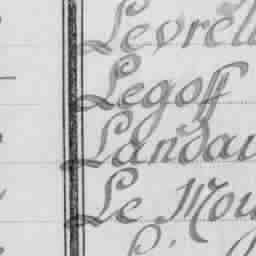 Levrel
Legoff
Landau
Le Mou